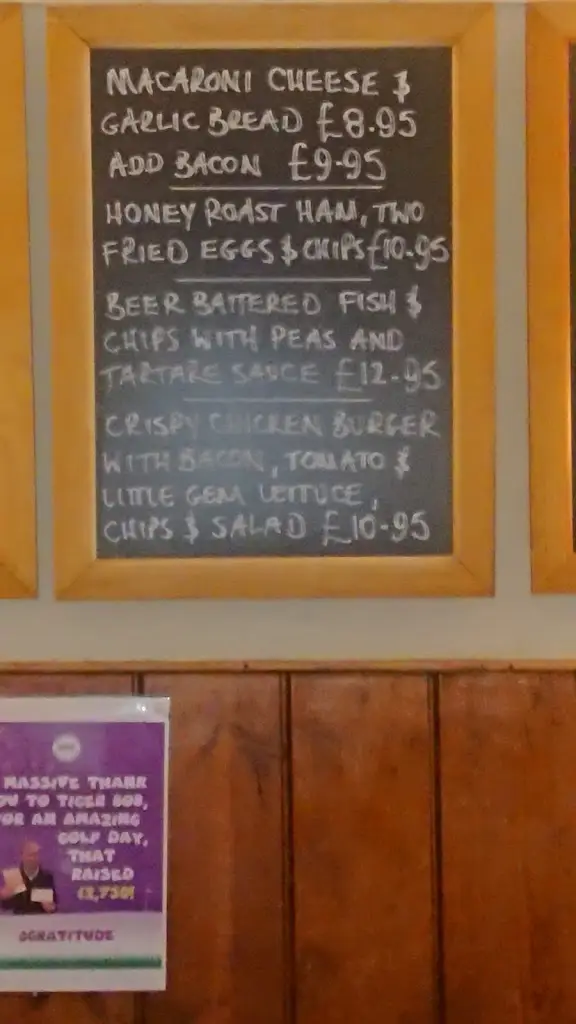 MACARONI CHEESE &
GARLIC BREAD £8.95
ADD BACON £9.95
HONEY ROAST HAM, TWO
FRIED EGGS & CHIPS £10.95
BEER BATTERED FISH &
CHIPS WITH PEAS AND
TARTARE SAUCE £12.95
CRISPY CHICKEN BURGER
WITH BACON, TOMATO &
LITTLE GEM LETTUCE,
CHIPS & SALAD £10.95
MASSIVE THANK
OU TO TIGER BOB,
OR AN AMAZING
GOLF DAY,
THAT
RAISED
£2,730!
#GRATITUDE